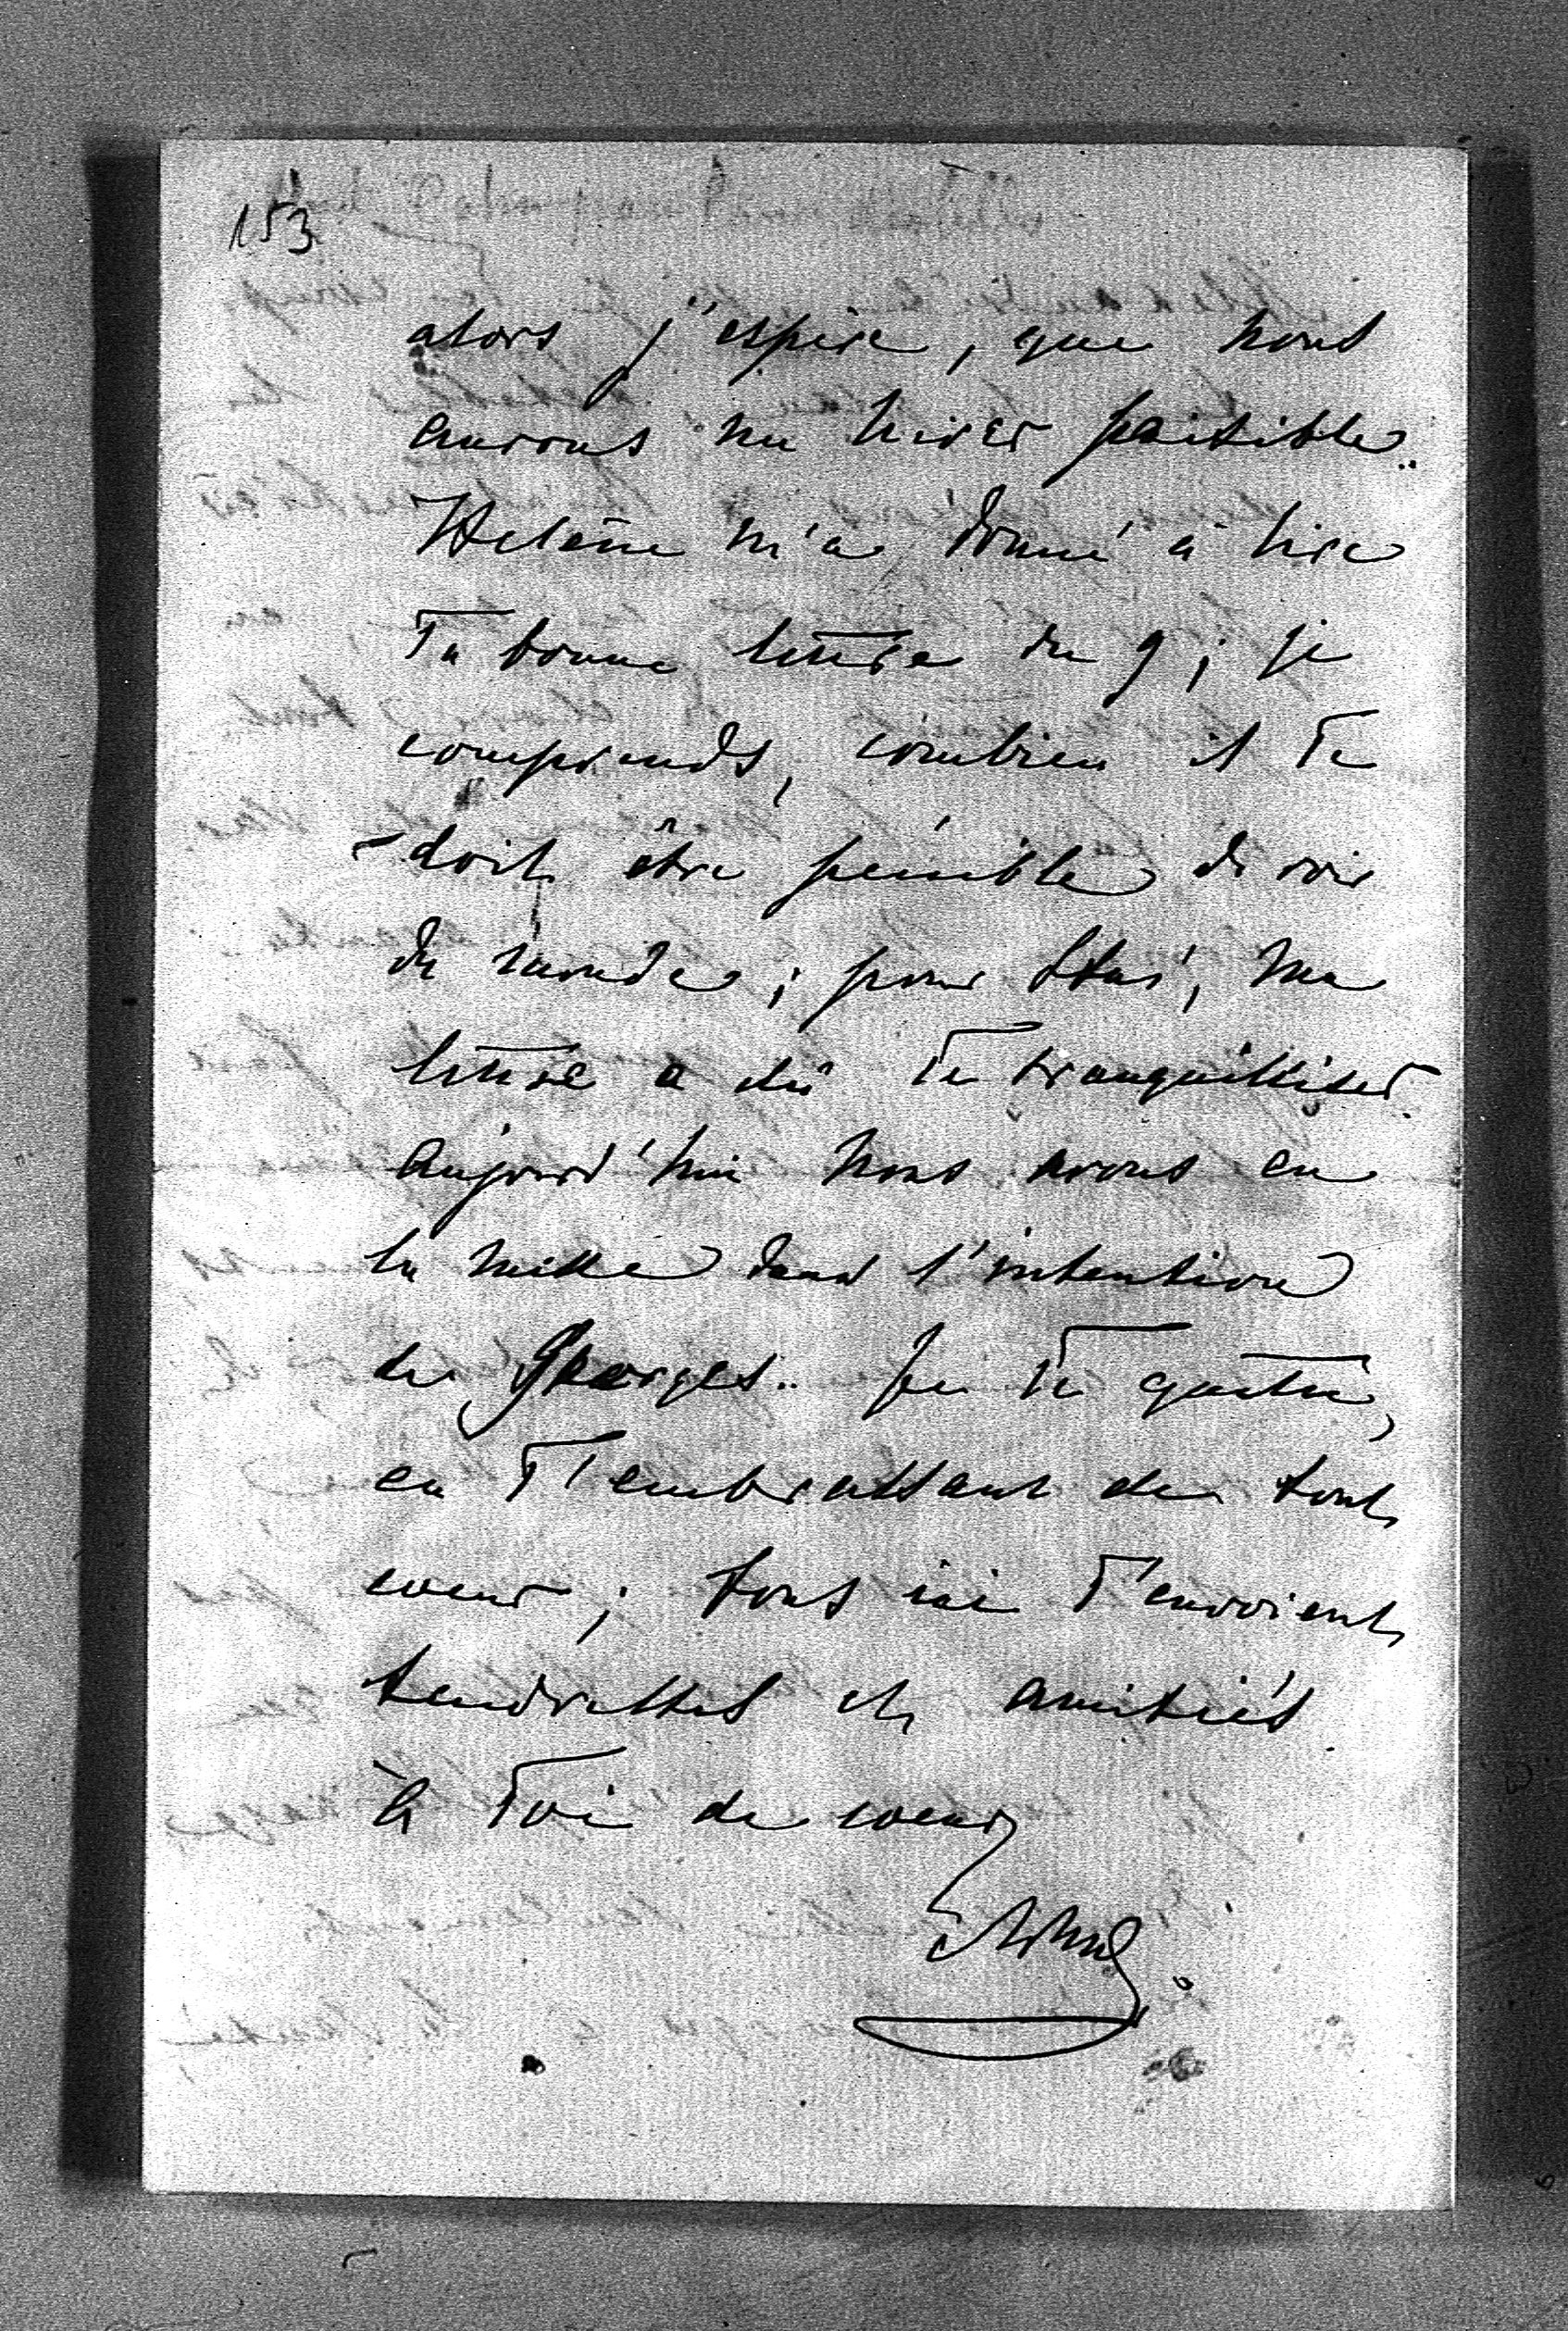 153
alors j'espère, que nous
aurons un hiver paisible.
Helène m'a donné à lire
Ta bonne lettre du 9; je
comprends, combien il Te
doit être penible de voir
du monde; pour Stas', ma
lettre a dû Te tranquilliser.
Aujourd'hui nous avons eu
la messe dans l'intention
de Georges. Je Te quitte,
en T'embrassant de tout
coeur; tous ici T'envoient
tendresses et amitiés
à Toi de coeur